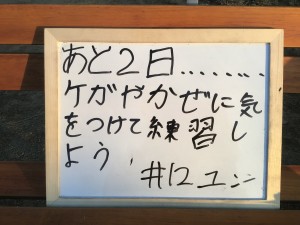 あと2日........
ケガやかぜに気
をつけて練習し
よう!
#12ユン